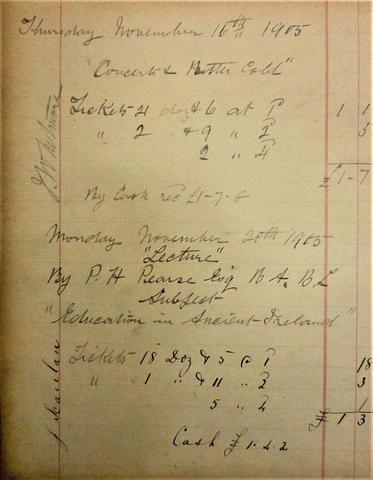 Thursday November 16th 1905
"Concert & Bitter Cold"
Tickets 4 doz & 6 at 1 1 1
" 2 " & 9 " 2 3
2 " 4
£1-7
By Cash rec £1-7-8
Monday November 20th 1905
"Lecture"
By P. H Pearse Esq B A. B L
Subject
"Education in Ancient Ireland"
Tickets 18 Doz & 5 @ 1 18
" 1 " & 11 " 2 3
5 " 4 1
£ 1 3
Cash £ 1.4.2